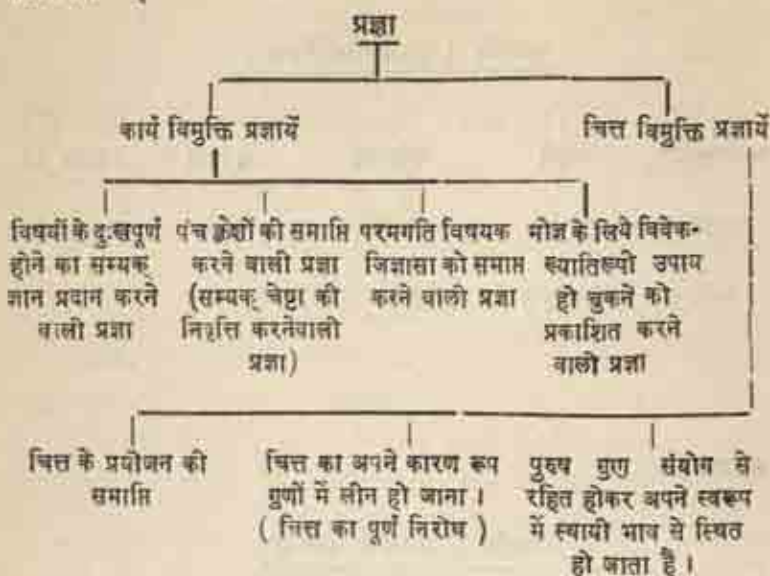 प्रज्ञा
कार्य विमुक्ति प्रज्ञायें
चित्त विमुक्ति प्रज्ञायें
विषयों के दुःखपूर्ण
होने का सम्यक्
ज्ञान प्रदान करने
वाली प्रज्ञा
पंच क्लेशों की समाप्ति
करने वाली प्रज्ञा
(सम्यक् चेष्टा की
निवृत्ति करनेवाली
प्रज्ञा)
परमगति विषयक
जिज्ञासा को समाप्त
करने वाली प्रज्ञा
मोक्ष के लिये विवेक-
ख्यातिरूपी उपाय
हो चुकने को
प्रकाशित करने
वाली प्रज्ञा
चित्त के प्रयोजन की
समाप्ति
चित्त का अपने कारण रूप
गुणों में लीन हो जाना ।
( चित्त का पूर्ण निरोध )
पुरुष गुण संयोग से
रहित होकर अपने स्वरूप
में स्थायी भाव से स्थित
हो जाता है ।